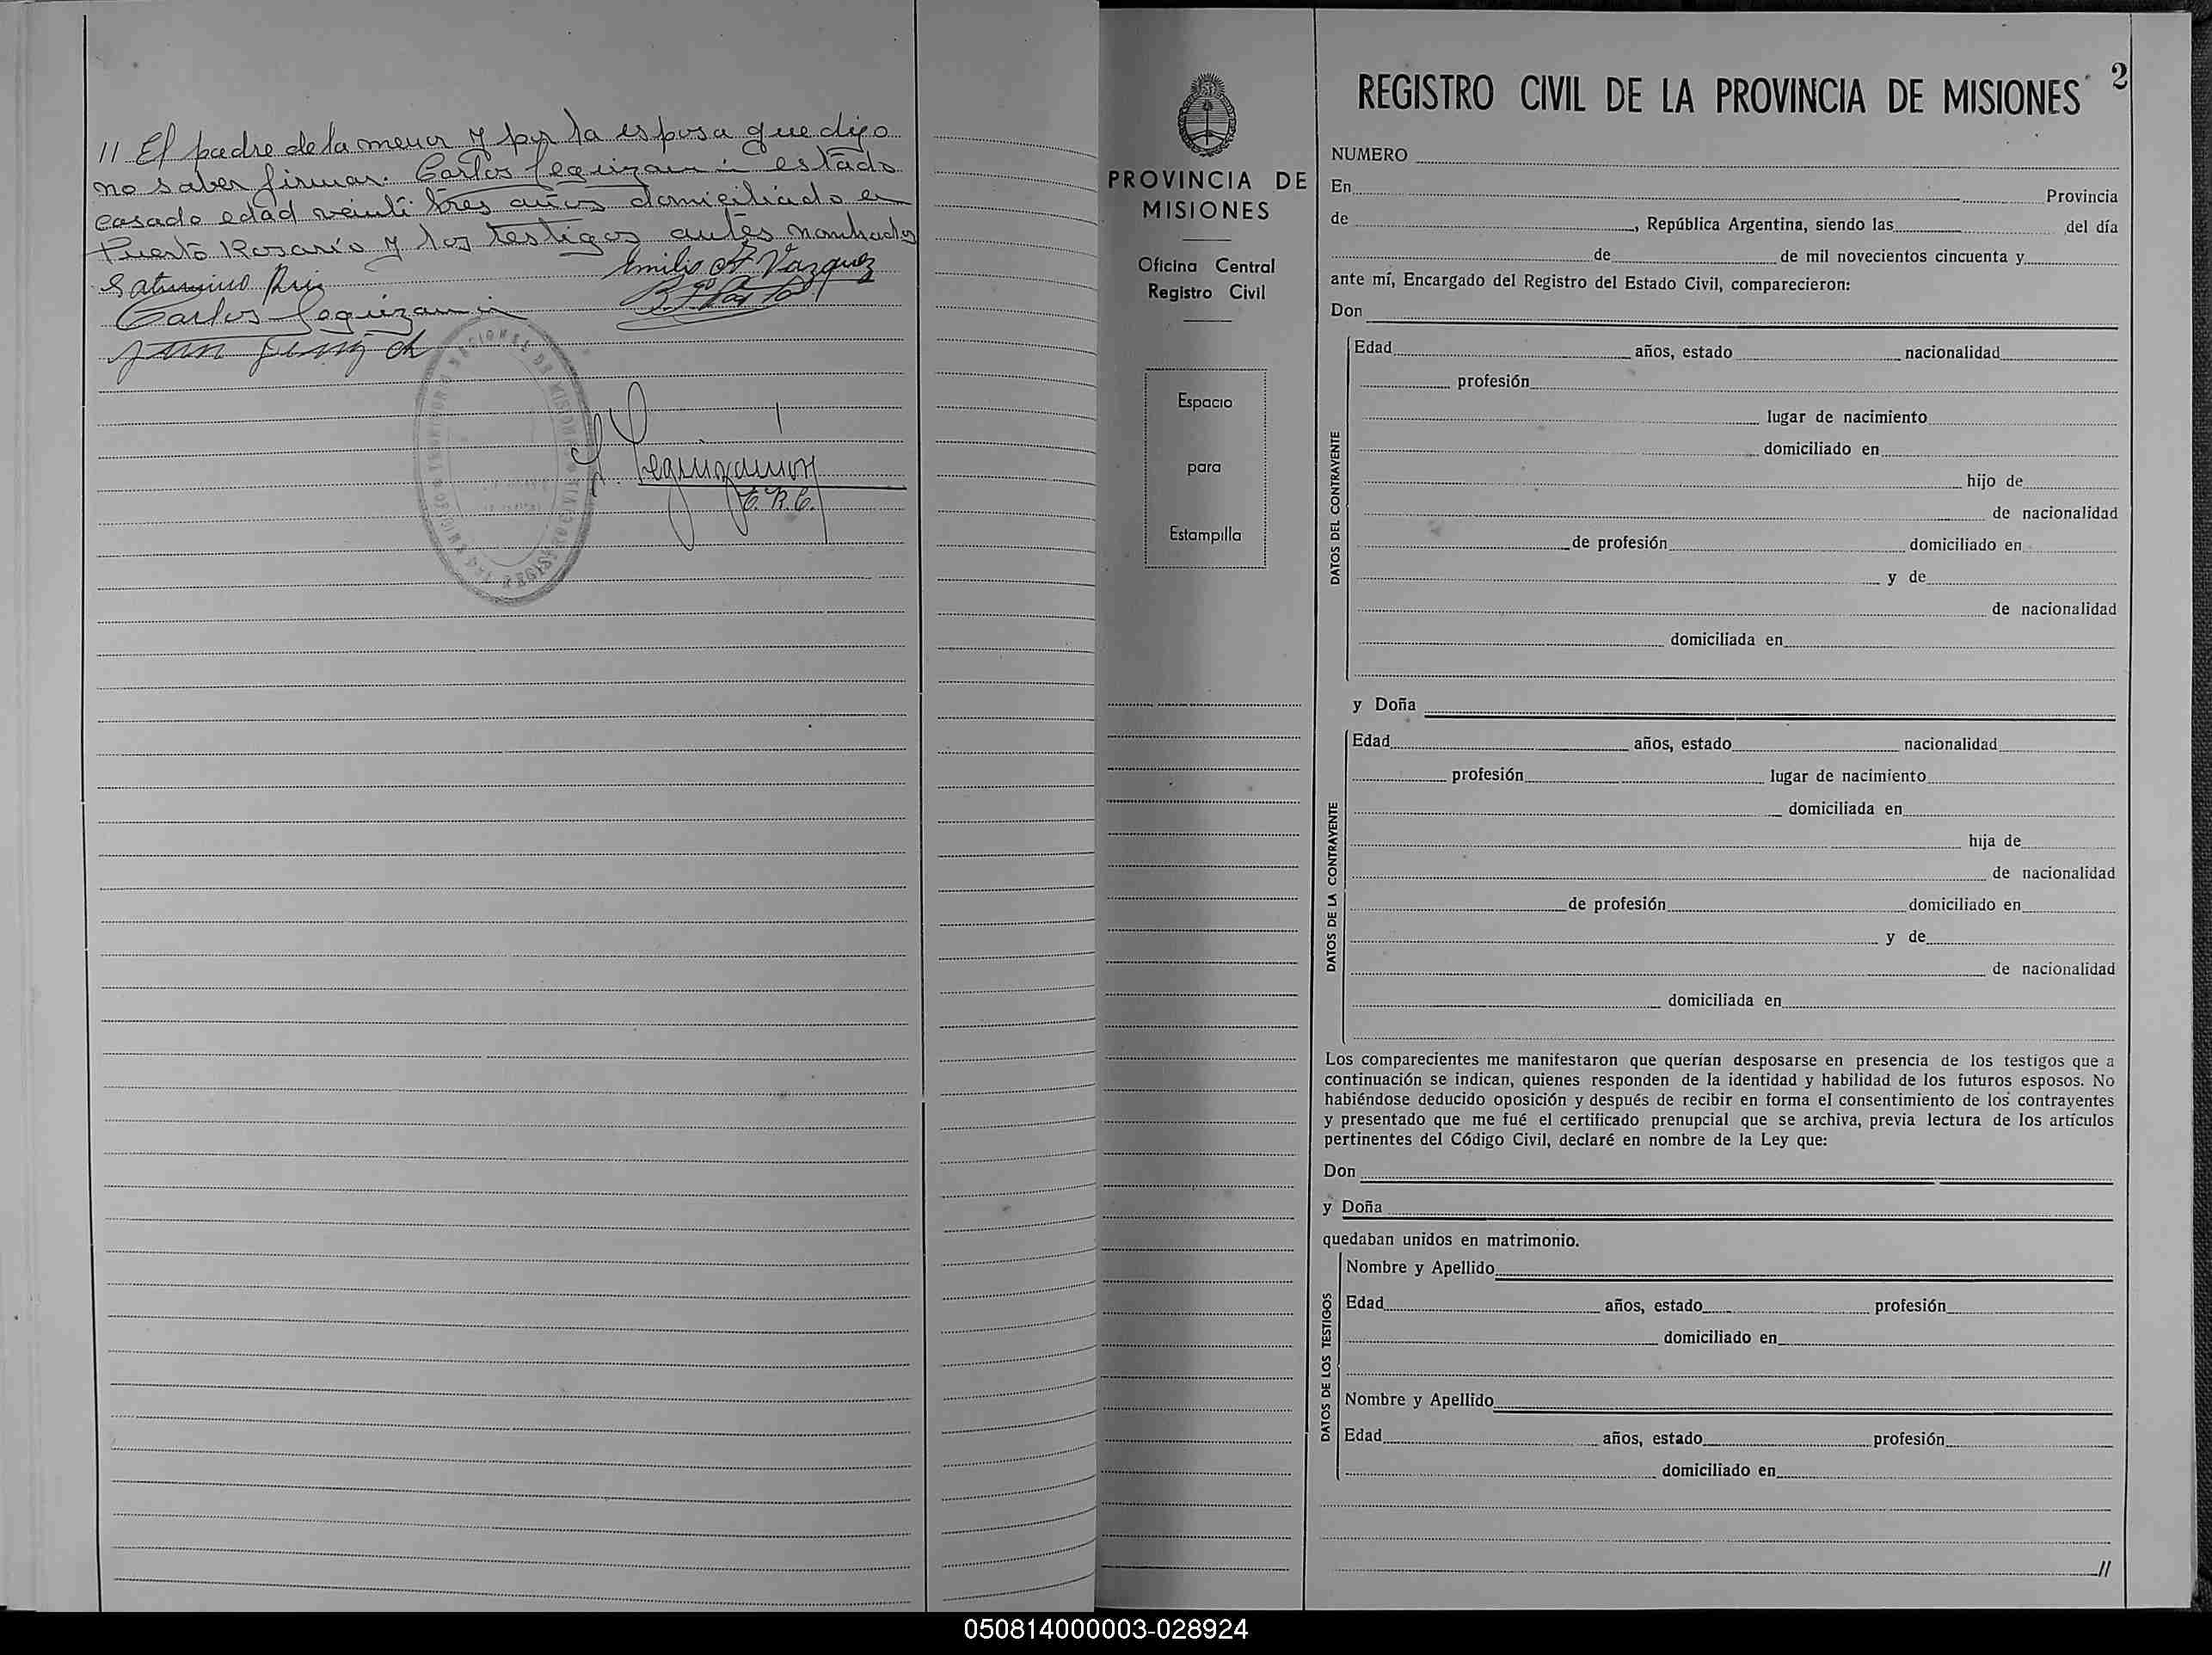 // El padre de la menor y por la esposa que dijo
no saber firmar. Carlos Leguizamón estado
casado edad veinti tres años domiciliado en
Puerto Rosario y los testigos antes nombrados
Saturnino Emilio A. Vazquez
Carlos Leguizamón
Juan
L. Leguizamón
E. R. C.
PROVINCIA DE
MISIONES
Oficina Central
Registro Civil
Espacio
para
Estampilla
REGISTRO CIVIL DE LA PROVINCIA DE MISIONES 2
NUMERO
En Provincia
de , República Argentina, siendo las del día
de de mil novecientos cincuenta y
ante mí, Encargado del Registro del Estado Civil, comparecieron:
Don
DATOS DEL CONTRAYENTE
Edad años, estado nacionalidad
profesión
lugar de nacimiento
domiciliado en
hijo de
de nacionalidad
de profesión domiciliado en
y de
de nacionalidad
domiciliada en
y Doña
DATOS DE LA CONTRAYENTE
Edad años, estado nacionalidad
profesión lugar de nacimiento
domiciliada en
hija de
de nacionalidad
de profesión domiciliado en
y de
de nacionalidad
domiciliada en
Los comparecientes me manifestaron que querían desposarse en presencia de los testigos que a
continuación se indican, quienes responden de la identidad y habilidad de los futuros esposos. No
habiéndose deducido oposición y después de recibir en forma el consentimiento de los contrayentes
y presentado que me fué el certificado prenupcial que se archiva, previa lectura de los artículos
pertinentes del Código Civil, declaré en nombre de la Ley que:
Don
y Doña
quedaban unidos en matrimonio.
DATOS DE LOS TESTIGOS
Nombre y Apellido
Edad años, estado profesión
domiciliado en
Nombre y Apellido
Edad años, estado profesión
domiciliado en
//
050814000003-028924